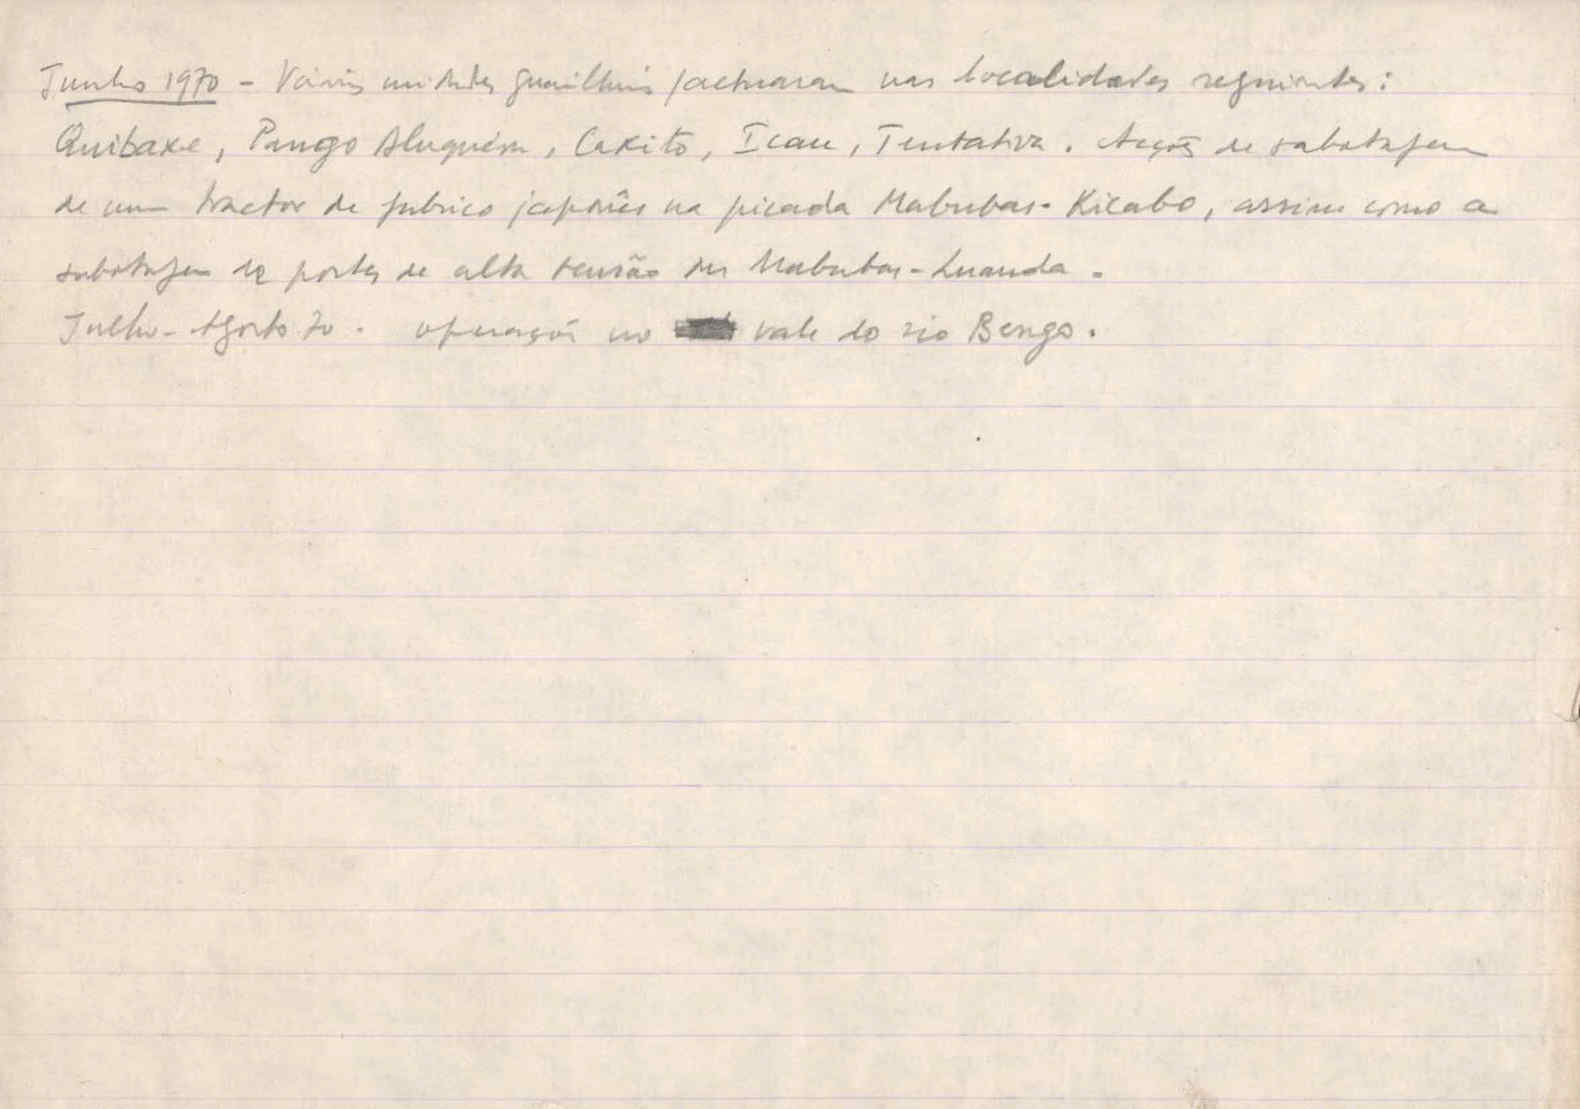 Junho 1970 - Várias unidades guerrilheiras actuaram nas localidades seguintes:
Quibaxe, Pango Aluquém, Caxito, Icau, Tentativa. Acções de sabotagem
de um tractor de fabrico japonês na picada Mabubas-Kicabo, assim como a
sabotagem de postes de alta tensão das Mabubas-Luanda.
Julho-Agosto 70. operações no vale do rio Bengo.